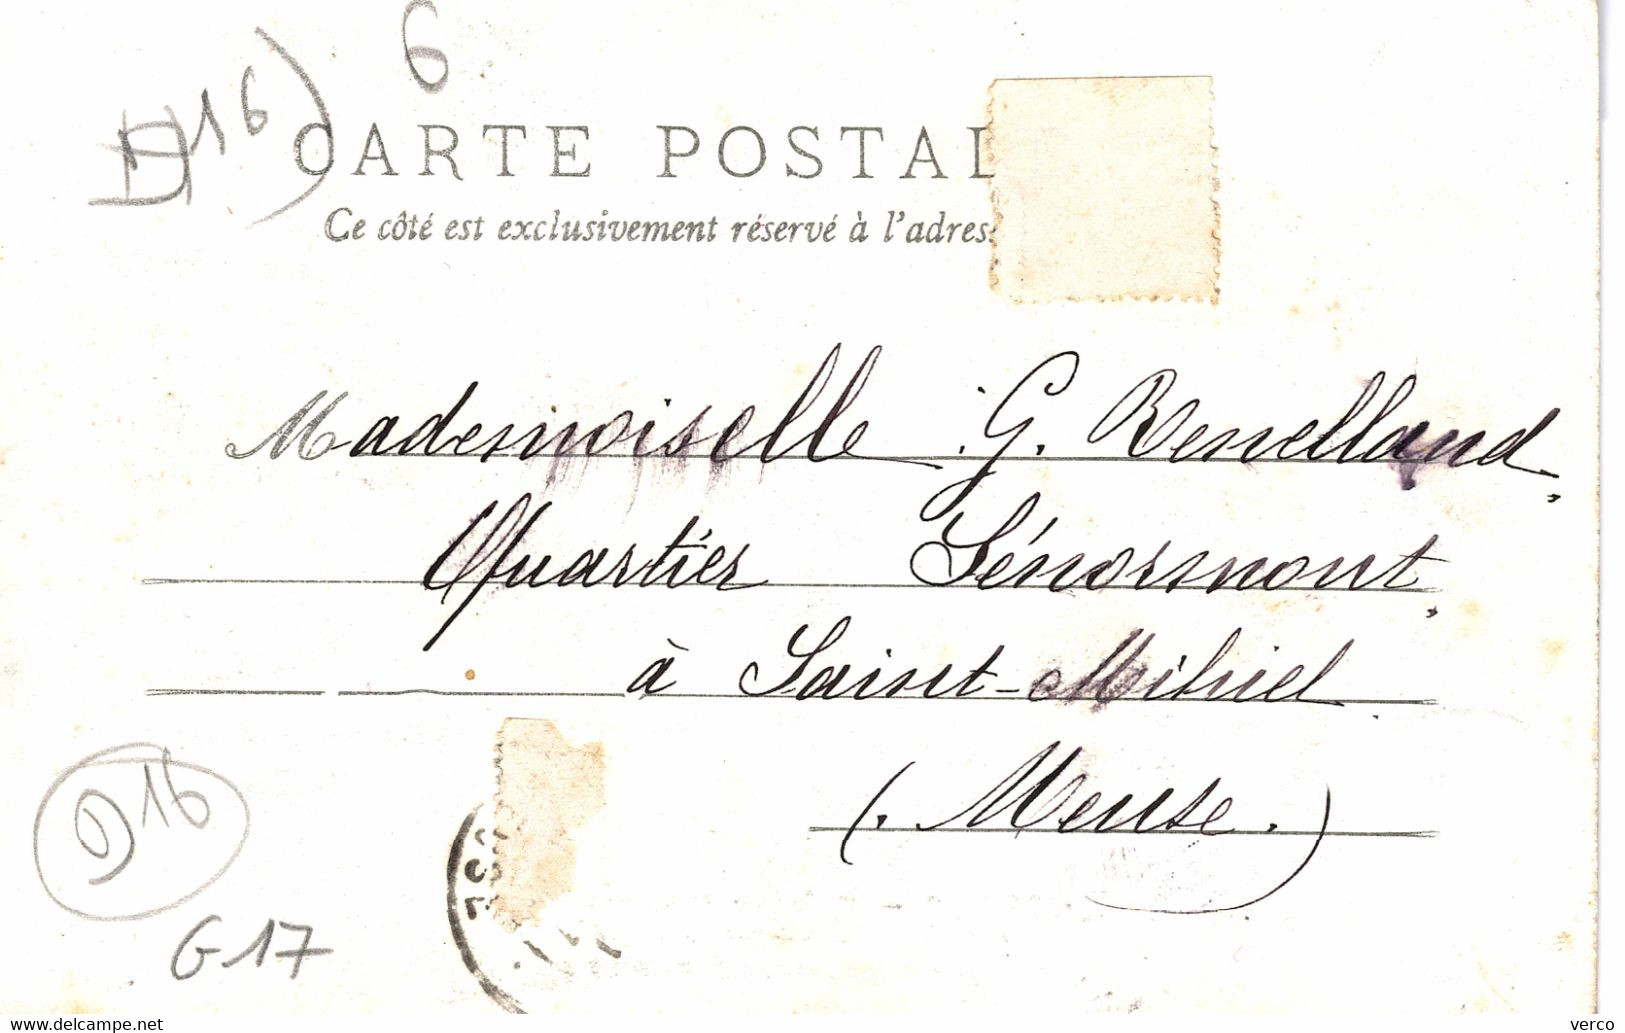 6
D 16)
CARTE POSTAL
Ce côté est exclusivement réservé à l'adress
Mademoiselle G. Benelland,
Quartier Sénormont,
à Saint-Mihiel
(Meuse.)
D16
G17
www.delcampe.net
verco